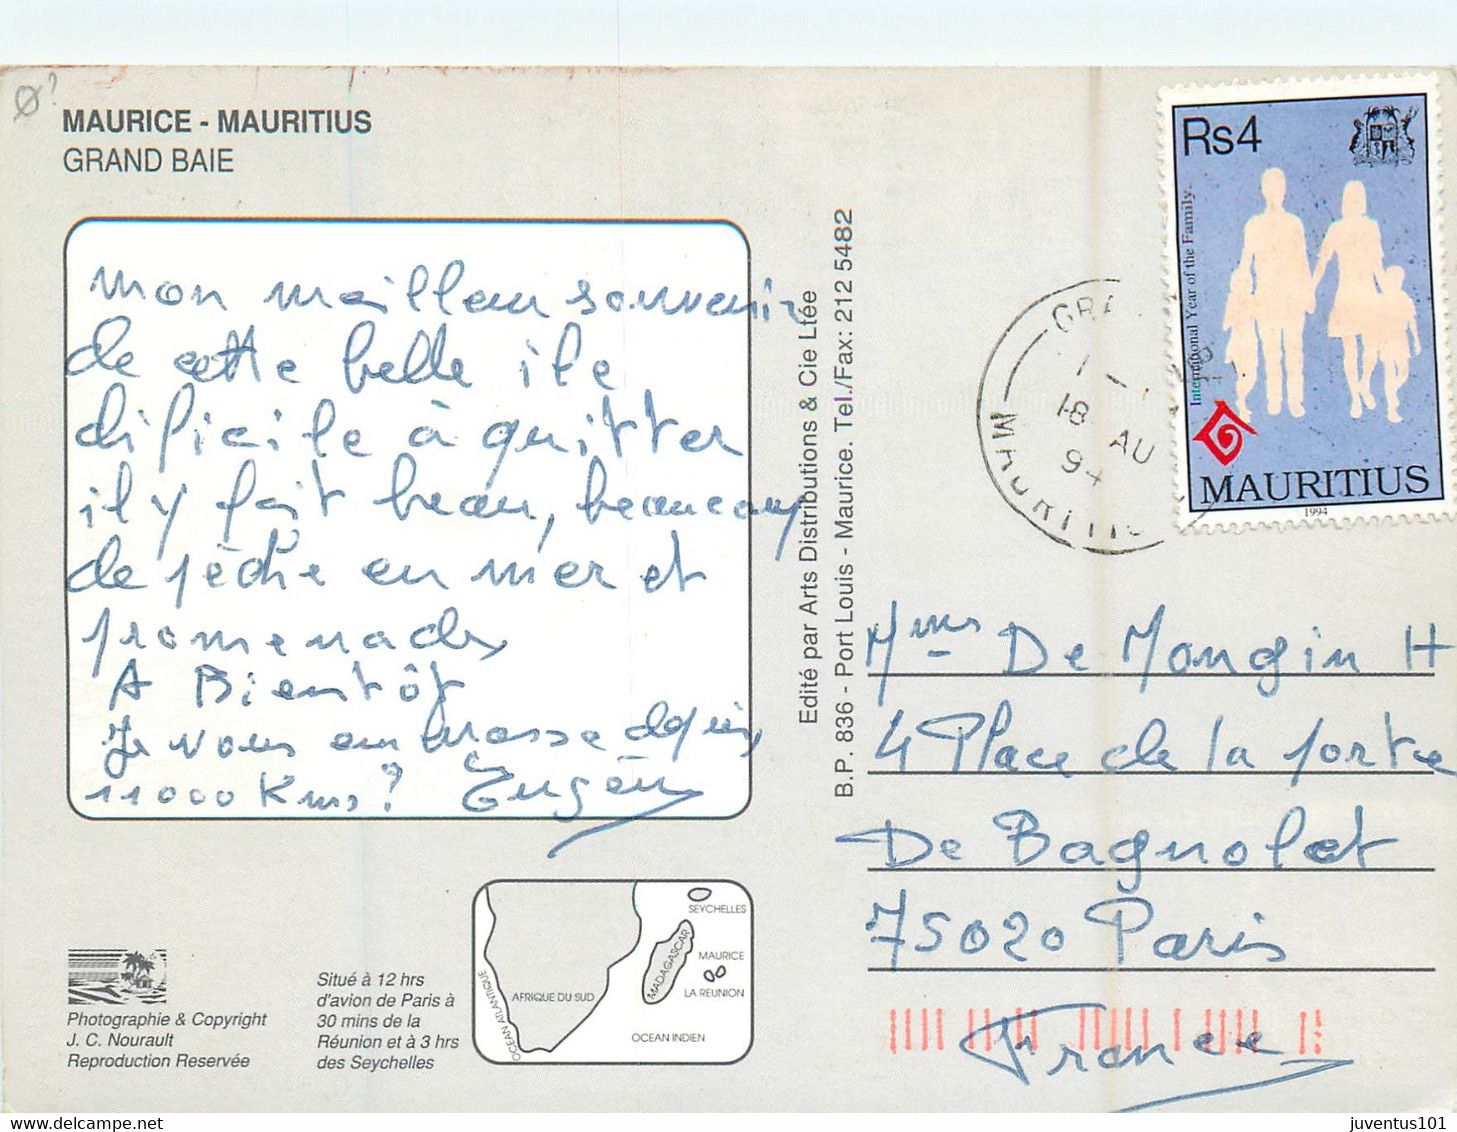 Ø?
MAURICE - MAURITIUS
GRAND BAIE
mon meilleur souvenir
de cette belle ile
dificile à quitter
il y fait beau, beaucoup
de pèche en mer et
promenades
A Bientôt
Je vous embrasse depuis
11000 Kms?
Situé à 12 hrs
d'avion de Paris à
30 mins de la
Réunion et à 3 hrs
des Seychelles
Photographie & Copyright
J. C. Nourault
Reproduction Reservée
SEYCHELLES
MADAGASCAR
MAURICE
LA REUNION
AFRIQUE DU SUD
OCEAN ATLANTIQUE
OCEAN INDIEN
Edité par Arts Distributions & Cie Ltée
B.P. 836 - Port Louis - Maurice. Tel./Fax: 212 5482
Rs4
International Year of the Family.
MAURITIUS
1994
18 AU
94
MAURITIUS
Mms De Mongin H
4 Place de la porte
De Bagnolet
75020 Paris
France
juventus101